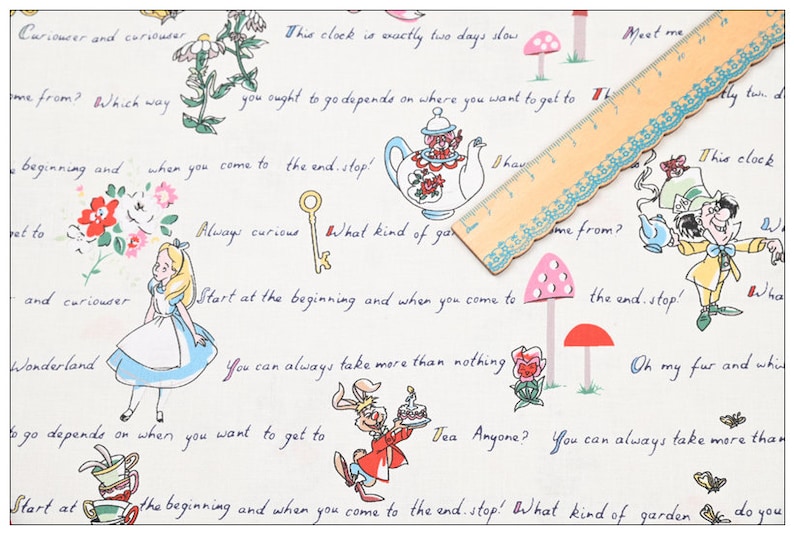 Curioucer and curiouser This clock is exactly two days slow Meet me
me from? Which way you ought to go depends on where you want to get to Th tly two d
e beginning and when you come to the end.stop! I have This clock
et to Always curious What kind of ga me from? W
and curiouser Start at the beginning and when you come to the end.stop! Wha
Wonderland You can always take more than nothing Oh my fur and whis
to go depends on when you want to get to Tea Anyone? You can always take more than
Start at the beginning and when you come to the end.stop! What kind of garden do you